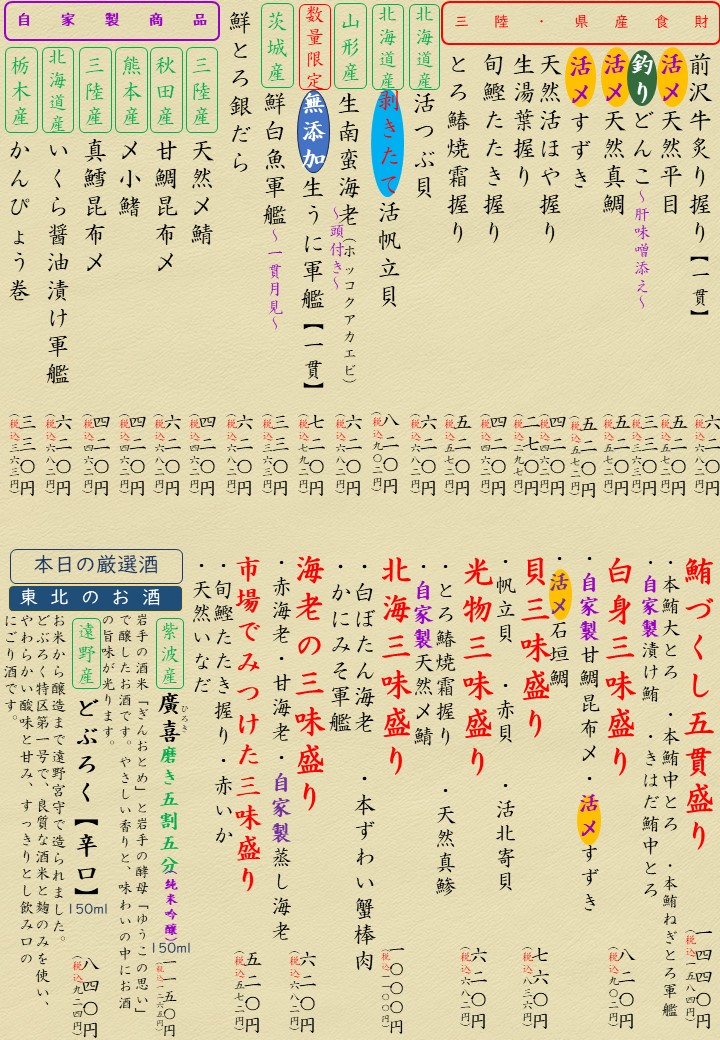 三陸・県産食財
前沢牛炙り握り【一貫】
六二〇円
(税込六八二円)
活〆天然平目
五二〇円
(税込五七二円)
釣りどんこ～肝味噌添え～
三三〇円
(税込三六三円)
活〆天然真鯛
五二〇円
(税込五七二円)
活〆すずき
五二〇円
(税込五七二円)
天然活ほや握り
四二〇円
(税込四六二円)
生湯葉握り
二七〇円
(税込二九七円)
旬鰹たたき握り
四二〇円
(税込四六二円)
とろ鰆焼霜握り
五二〇円
(税込五七二円)
北海道産
活つぶ貝
六二〇円
(税込六八二円)
北海道産
剥きたて活帆立貝
八二〇円
(税込九〇二円)
山形産
生南蛮海老(ホッコクアカエビ)
～頭付き～
六二〇円
(税込六八二円)
数量限定
無添加生うに軍艦【一貫】
七二〇円
(税込七九二円)
茨城産
鮮白魚軍艦～一貫月見～
三三〇円
(税込三六三円)
鮮とろ銀だら
六二〇円
(税込六八二円)
自家製商品
三陸産
天然〆鯖
四二〇円
(税込四六二円)
秋田産
甘鯛昆布〆
六二〇円
(税込六八二円)
熊本産
〆小鰭
四二〇円
(税込四六二円)
三陸産
真鱈昆布〆
四二〇円
(税込四六二円)
北海道産
いくら醤油漬け軍艦
六二〇円
(税込六八二円)
栃木産
かんぴょう巻
三三〇円
(税込三六三円)
鮪づくし五貫盛り
一四四〇円
(税込一五八四円)
・本鮪大とろ ・本鮪中とろ ・本鮪ねぎとろ軍艦
・自家製漬け鮪 ・きはだ鮪中とろ
白身三味盛り
八二〇円
(税込九〇二円)
・自家製甘鯛昆布〆・活〆すずき
・活〆石垣鯛
貝三味盛り
七六〇円
(税込八三六円)
・帆立貝 ・赤貝 ・活北寄貝
光物三味盛り
六二〇円
(税込六八二円)
・とろ鰆焼霜握り ・天然真鯵
・自家製天然〆鯖
北海三味盛り
一〇〇〇円
(税込一一〇〇円)
・白ぼたん海老 ・本ずわい蟹棒肉
・かにみそ軍艦
海老の三味盛り
六二〇円
(税込六八二円)
・赤海老・甘海老・自家製蒸し海老
市場でみつけた三味盛り
五二〇円
(税込五七二円)
・旬鰹たたき握り・赤いか
・天然いなだ
本日の厳選酒
東北のお酒
紫波産
廣喜磨き五割五分(純米吟醸)
ひろき
150ml
一一五〇円
(税込一二六五円)
岩手の酒米「ぎんおとめ」と岩手の酵母「ゆうこの思い」
で醸したお酒です。やさしい香りと、味わいの中にお酒
の旨味が光ります。
遠野産
どぶろく【辛口】
150ml
八四〇円
(税込九二四円)
お米から醸造まで遠野宮守で造られました。
どぶろく特区第一号で、良質な酒米と麹のみを使い、
やわらかい酸味と甘み、すっきりとし飲み口の
にごり酒です。